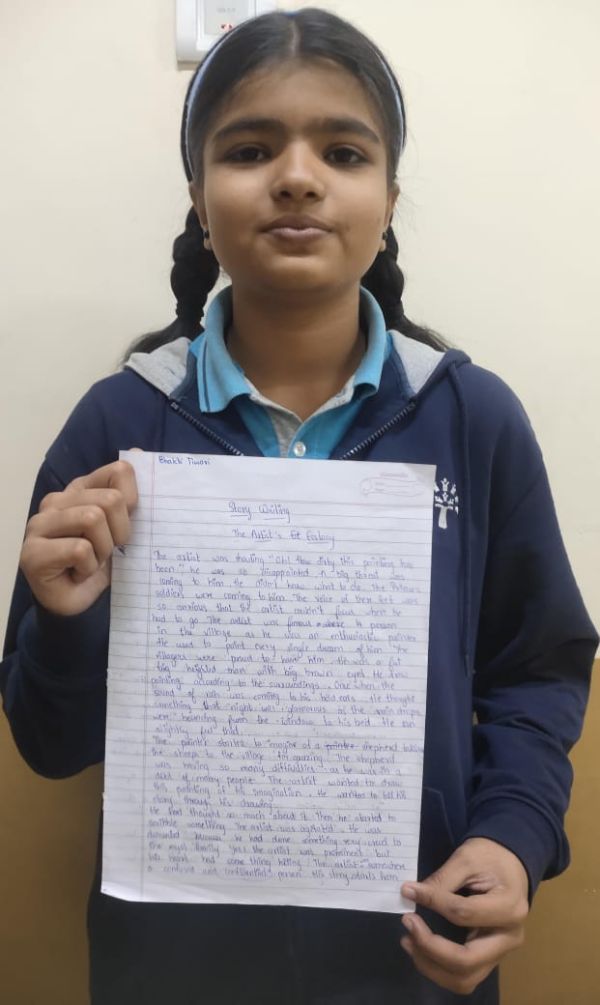 Bhakti Tiwari
Story Writing
The Artist's Ecstasy
The artist was shouting "Oh! How dirty this painting has
been". He was so disappointed. A big thing was
coming to him. He didn't know what to do. The Prince's
soldiers were coming to him. The voice of their feet was
so anxious that the artist couldn't find where he
had to go. The artist was famous person
in the village as he was an enthusiastic painter.
He used to paint every single dream of him. The
villagers were proud to have him. He was a fat
heighted man with big brown eyes. He was
painting according to the surroundings. Once when the
sound of rain was coming to his bold ears. He thought
something that night was glamorous as the rain drops
were bouncing from the window to his bed. He ran
slightly but bold.
The painter started to imagine of a shepherd taking
the sheeps to the village for grazing. The shepherd
was having so many difficulties as he was in a
of many people. The artist wanted to draw
this painting of his imagination. He wanted to tell his
story through his drawing.
He had thought so much about it then he started to
scribble something. The artist was agitated. He was
because he had done something very cruel to
the royal family. Yes! the artist was prominent but
his heart had something hiding. The artist
a confused and confidential person. His story starts from